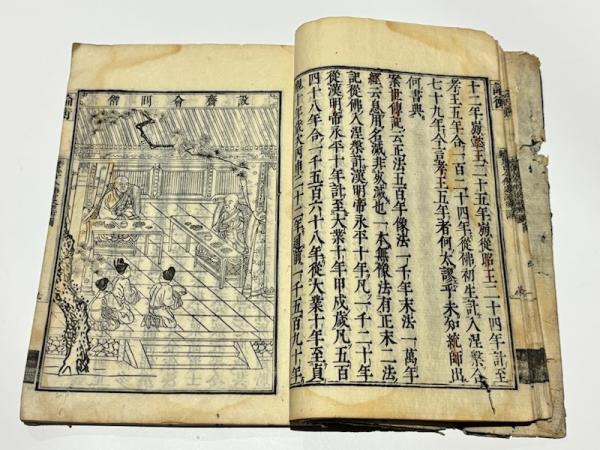 十二年崩懿王二十五年崩從昭王二十四年計至
孝王五年合一百二十四年從佛初生計入涅槃合
七十九年人言孝王五年者何太謬乎未知統師出
何書典
案世傳記云正法五百年像法一千年末法一萬年
經云息用名滅非歿滅也一本無像法有正末二法
記從佛入涅槃計漢明帝永平十年凡一千二十年
從漢明帝永平十年計至大業十年甲戌歲凡五百
四十八年合一千五百六十八年從大業十年至貞
設齋會同僧